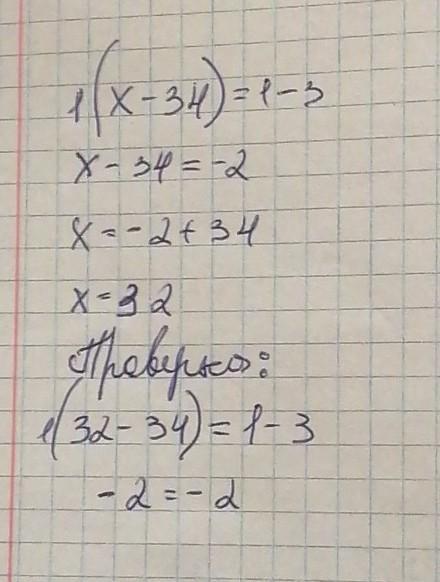 1(x-34)=1-3
x-34=-2
x=-2+34
x=32
Проверка:
1(32-34)=1-3
-2=-2